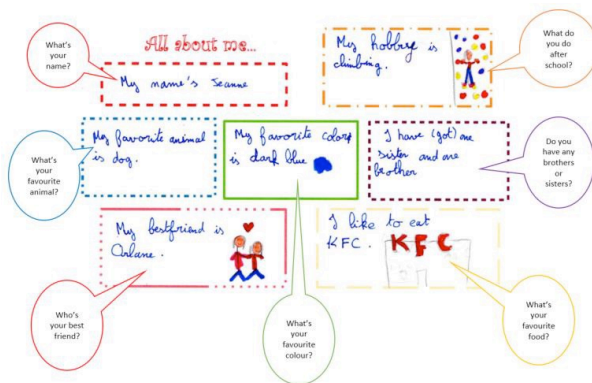 All about me...
What's
your
name?
My name's Jeanne
My hobbye is
climbing.
What do
you do
after
school?
What's
your
favourite
animal?
My favorite animal
is dog.
My favorite colors
is dark blue
I have (got) one
sister and one
brother
Do you have
any
brothers
or
sisters?
My bestfriend is
Orlane.
I like to eat
KFC.
KFC
Who's
your best
friend?
What's
your
favourite
colour?
What's
your
favourite
food?